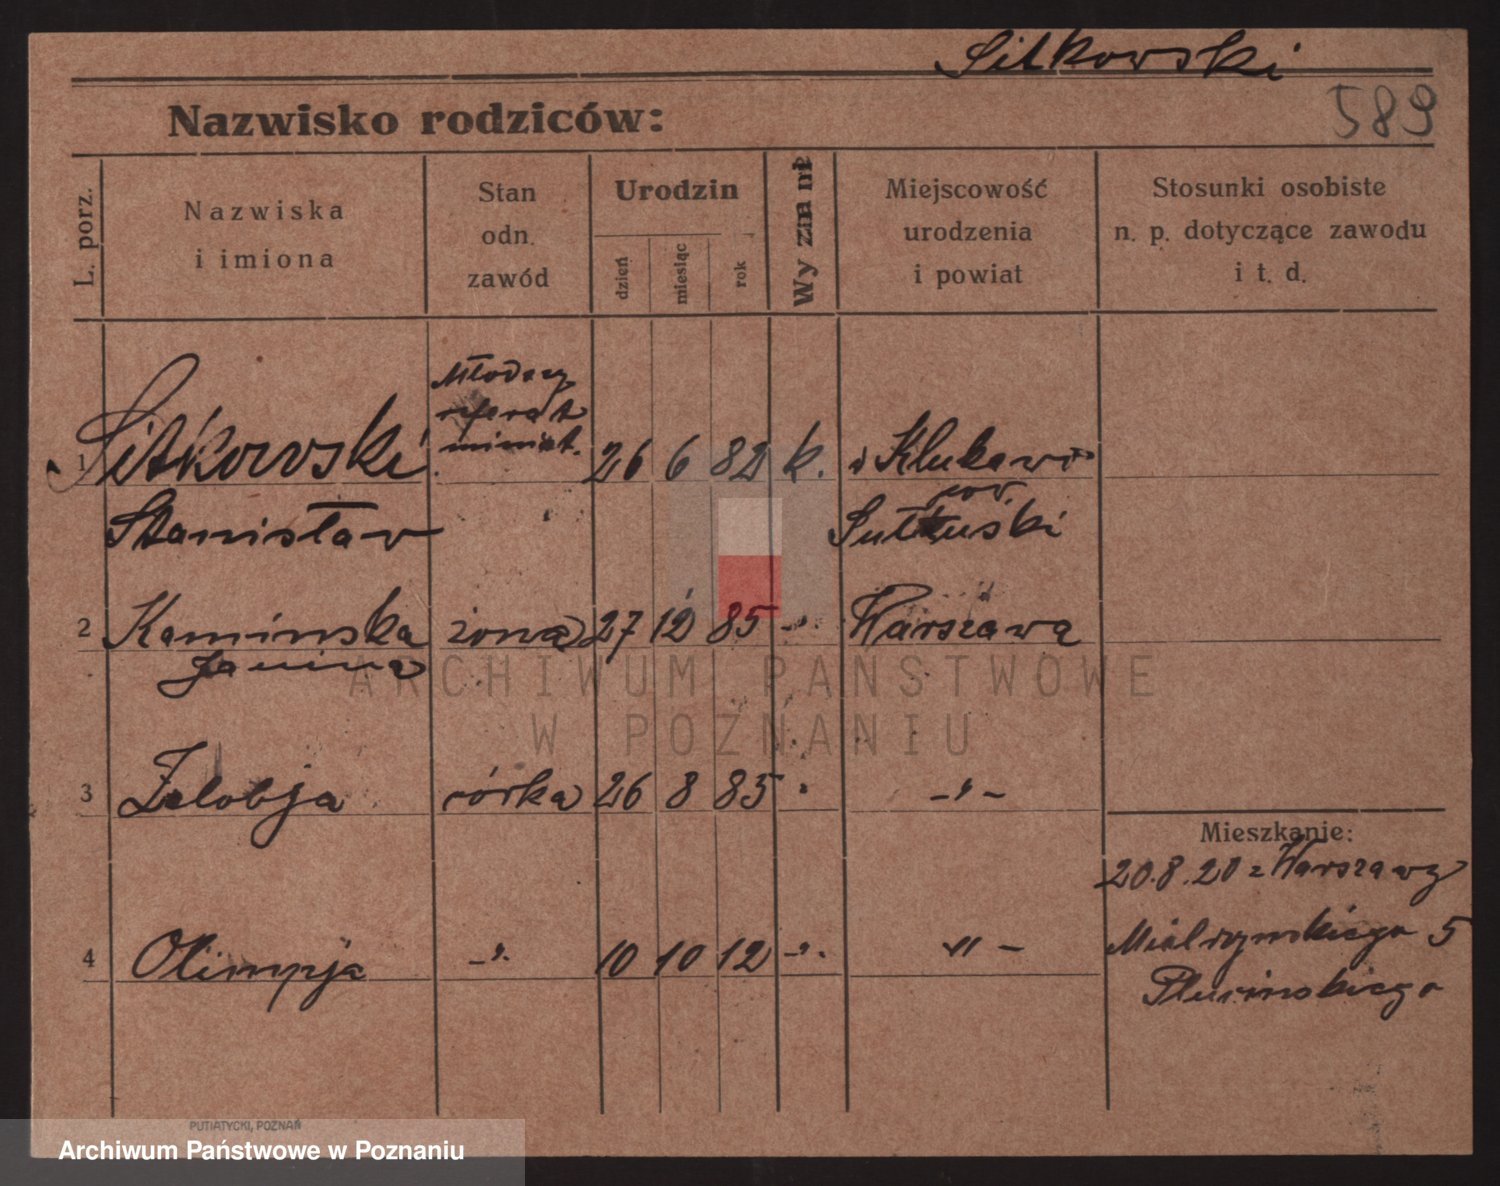 Sitkowski
589
Nazwisko rodziców:
L. porz.
Nazwiska
i imiona
Stan
odn.
zawód
Urodzin
dzień
miesiąc
rok
Wyznanie
Miejscowość
urodzenia
i powiat
Stosunki osobiste
n. p. dotyczące zawodu
i t. d.
Młodszy
referat
1 Sitkowski 26 6 82 k. Klukawo
Stanisław
pov.
Sułtuski
2 Kaminska żona 27 12 85 -"- Warszawa
Janina
3 córka 26 8 85 " -"-
Mieszkanie:
20.8.20 z Warszawy
4 Olimpja -"- 10 10 12 -"- " -
Mielrzynskiego 5
Plucinskiego
ARCHIWUM PAŃSTWOWE
W POZNANIU
PUTIATYCKI, POZNAŃ
Archiwum Państwowe w Poznaniu